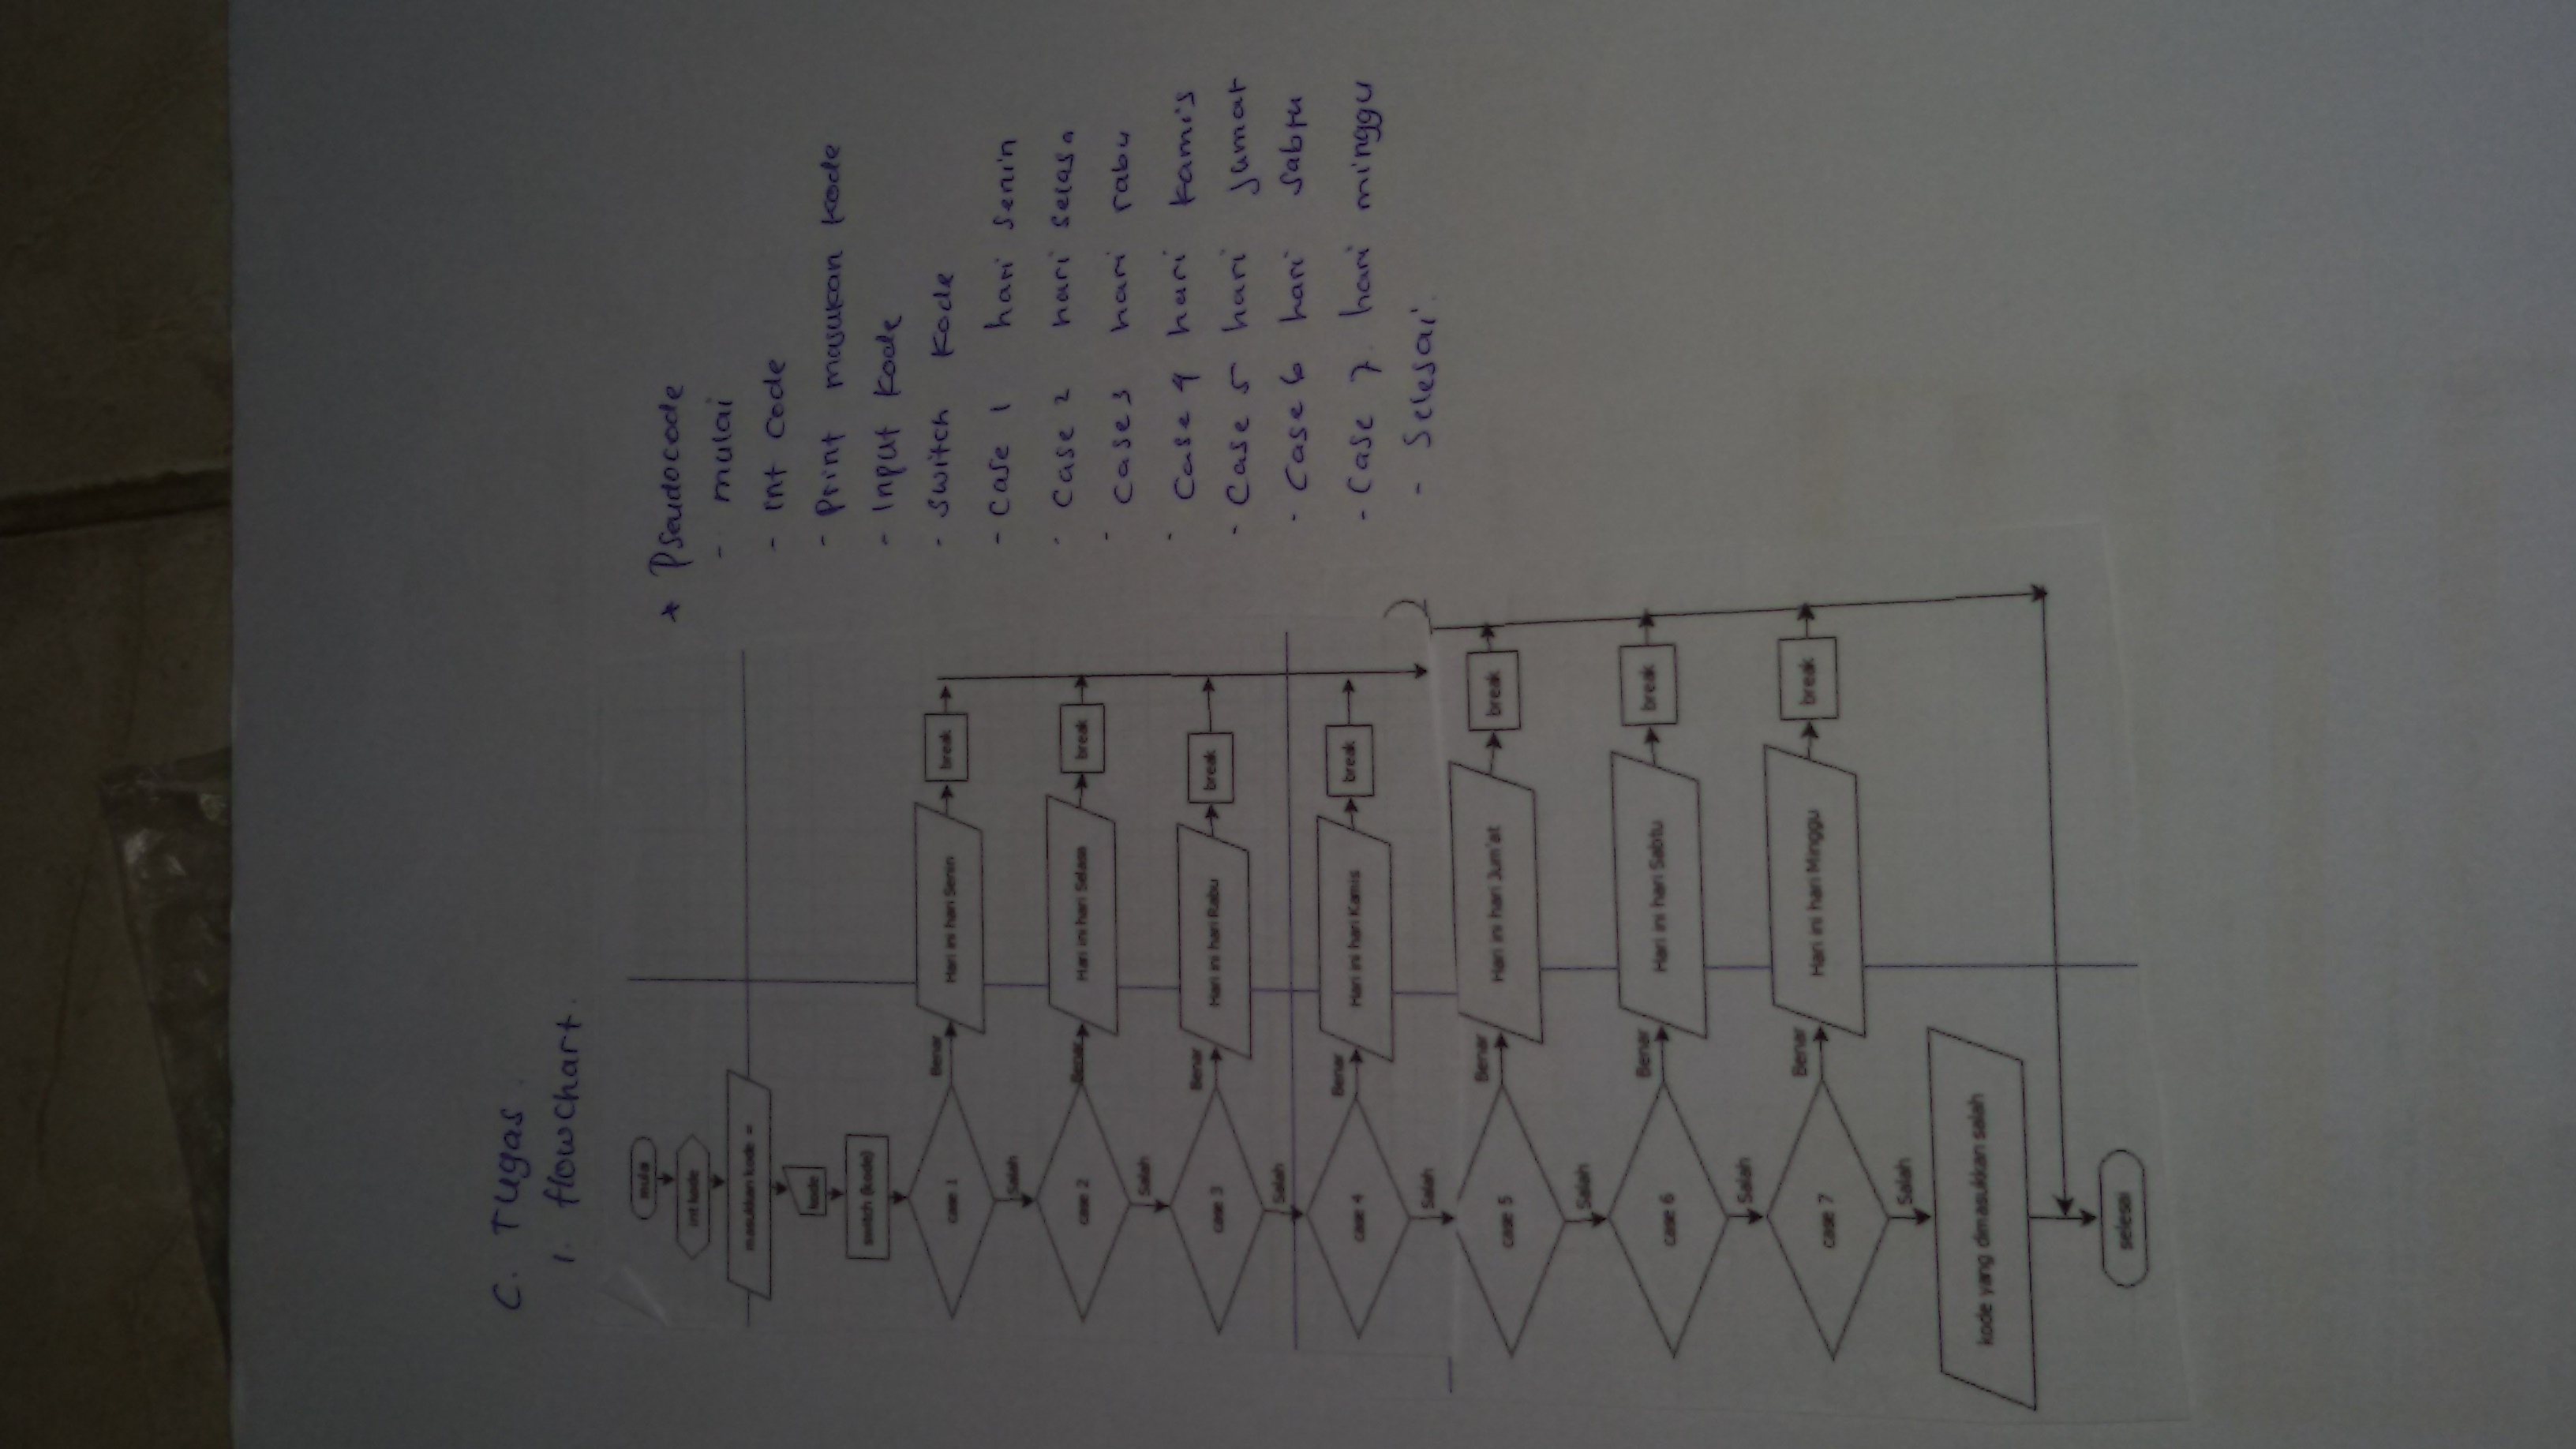 C. Tugas.
1. flowchart.
mulai
int kode
masukkan kode =
kode
switch (kode)
case 1
Benar
Hari ini hari Senin
break
Salah
case 2
Benar
Hari ini hari Selasa
break
Salah
case 3
Benar
Hari ini hari Rabu
break
Salah
case 4
Benar
Hari ini hari Kamis
break
Salah
case 5
Benar
Hari ini hari Jum'at
break
Salah
case 6
Benar
Hari ini hari Sabtu
break
Salah
case 7
Benar
Hari ini hari Minggu
break
Salah
kode yang dimasukkan salah
selesai
* Pseudocode
- mulai
- Int code
- Print masukan kode
- Input kode
- Switch kode
- Case 1 hari senin
- Case 2 hari selasa
- Case 3 hari rabu
- Case 4 hari kamis
- Case 5 hari jumat
- Case 6 hari sabtu
- Case 7. hari minggu
- Selesai.